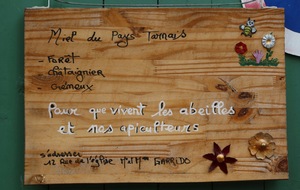 Miel du Pays Tarnais
- Forêt
- châtaignier
- Crémeux
Pour que vivent les abeilles
et nos apiculteurs
s'adresser
12 Rue de l'église M et Mme GARRIDO